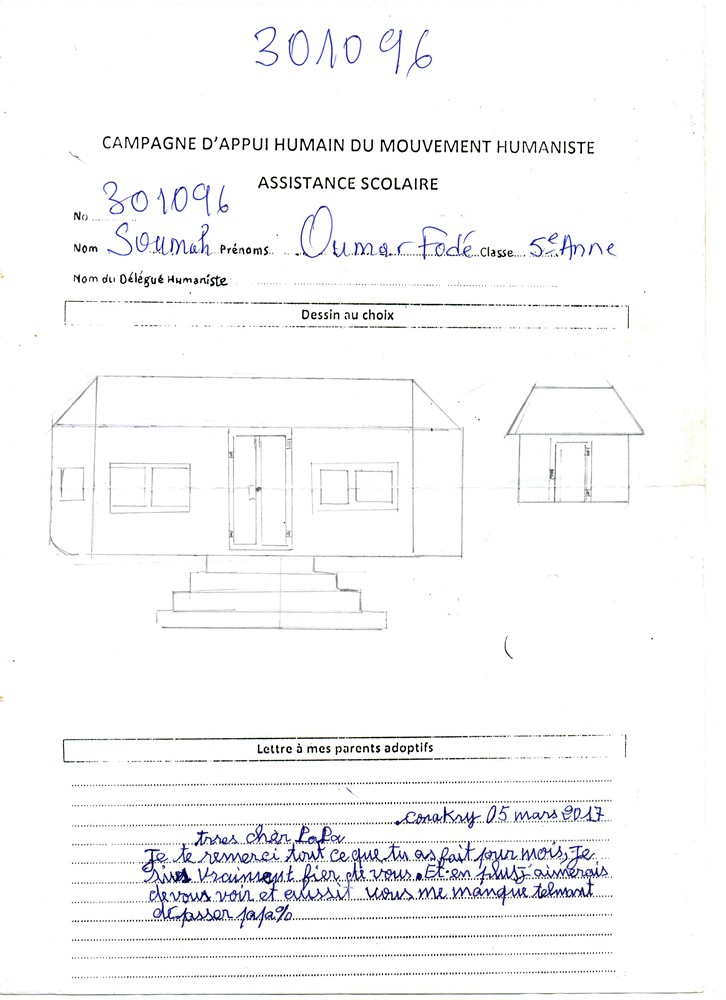 301096
CAMPAGNE D'APPUI HUMAIN DU MOUVEMENT HUMANISTE
ASSISTANCE SCOLAIRE
No 301096
Nom Soumah Prénoms Oumar Fodé Classe 5e Anne
Nom du Délégué Humaniste
Dessin au choix
Lettre à mes parents adoptifs
conakry 05 mars 2017
trres chèr PaPa
Je te remerci tout ce que tu as fait pour mois, Je
suis vraiment fier de vous. Et en plus j-aimerais
de vous voir et aussit vous me manque telmant
dépasser papa%